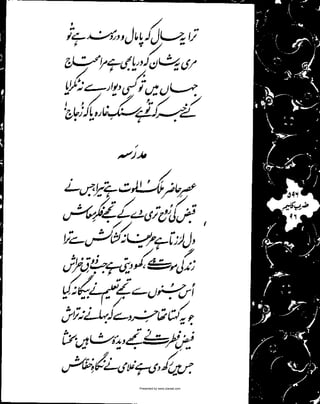 ترا یہ حال کہ پامال و دردمند ہے تو
مری یہ شان کہ دریا بھی ہے مرا محتاج
جہاں میں تو کسی دیوار سے نہ ٹکرایا
کسے خبر کہ تو ہے سنگِ خارہ یا کہ زجاج
مدرسہ
عصرِ حاضر ملک الموت ہے تیرا جس نے
قبض کی روح تری دے کے تجھے فکرِ معاش
دل لرزتا ہے حریفانہ کشاکش سے ترا
زندگی موت ہے کھو دیتی ہے جب ذوقِ خراش
اُس جنوں سے تجھے تعلیم نے بیگانہ کیا
جو یہ کہتا تھا خرد سے کہ بہانے نہ تراش
فیضِ فطرت نے تجھے دیدۂ شاہیں بخشا
جس میں رکھ دی ہے غلامی نے نگاہِ خفاش
ضربِ کلیم
Presented by www.ziaraat.com